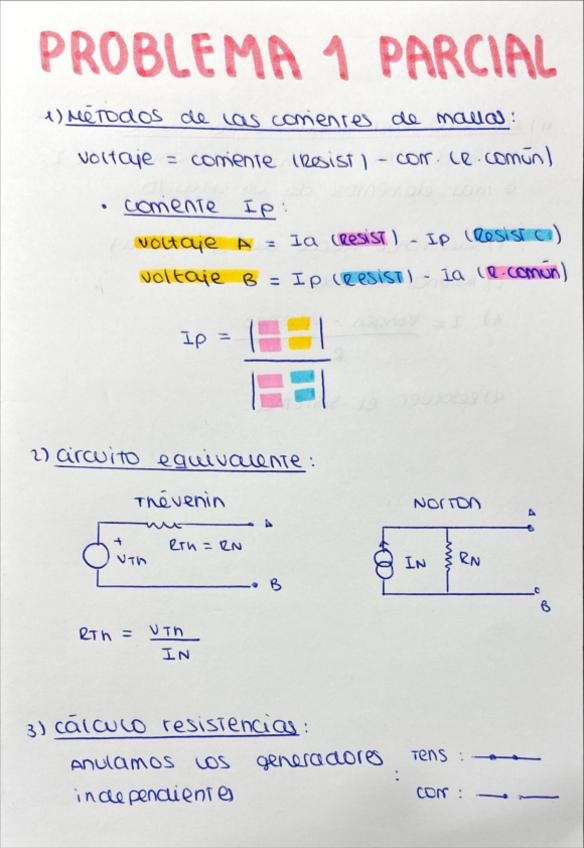 PROBLEMA 1 PARCIAL
1) Métodos de las corrientes de mallas:
Voltaje = corriente (Resist) - corr. (R. común)
• corriente Ip:
Voltaje A = Ia (Resist) - Ip (Resist C)
Voltaje B = Ip (Resist) - Ia (R. común)
Ip =
2) circuito equivalente:
Thévenin
Norton
A
A
+
VTh
RTh = RN
IN
RN
B
B
RTh = VTh
IN
3) cálculo resistencias:
Anulamos los generadores
independientes
:
TENS :
corr :